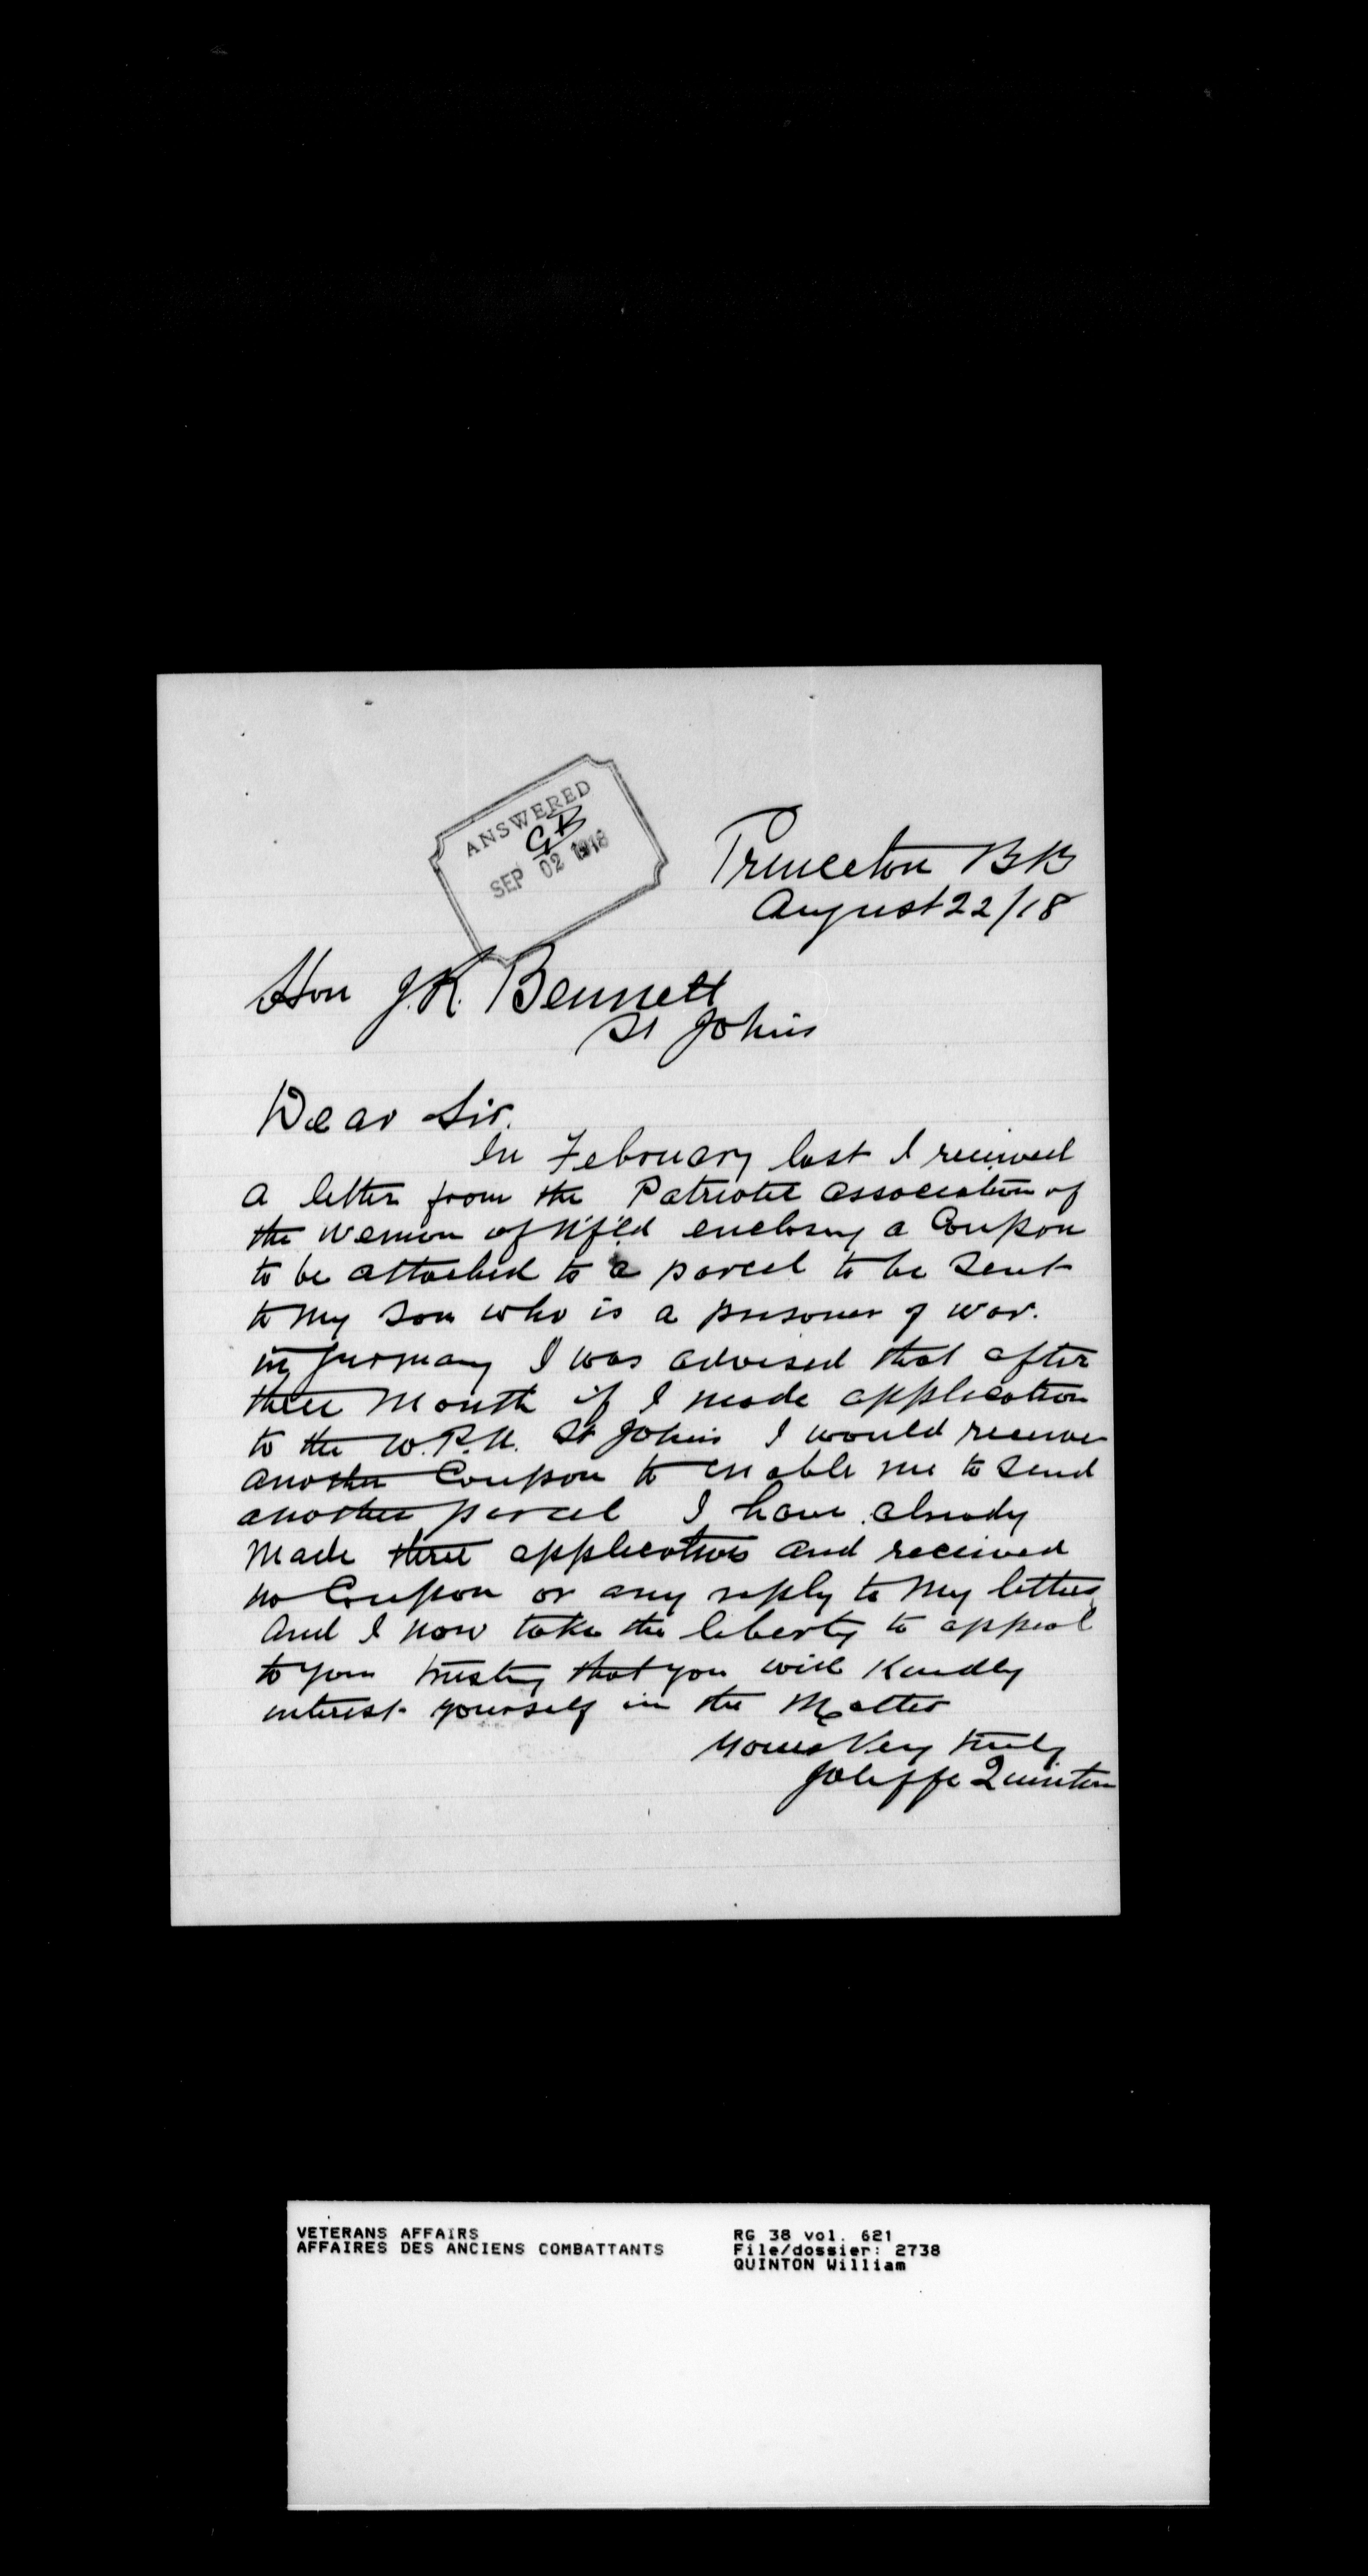 ANSWERED
GB
SEP 02 1918
Princeton BB
August 22/18
Hon J.R. Bennett
St Johns
Dear Sir.
In February last I received
a letter from the Patriotic association of
the Wemen of N'f'l'd enclosing a Coupon
to be attached to a parcel to be sent
to my son who is a prisoner of war.
in Germany I was advised that after
three Month if I made application
to the W.P.A. St Johns I would receive
another Coupon to enable me to send
another parcel I have already
Made three applications and received
no Coupon or any reply to my letters
And I now take the liberty to appeal
to you trusting that you will Kindly
interest yourself in the Matter
Yours Very truly
Joliffe Quinton
VETERANS AFFAIRS
AFFAIRES DES ANCIENS COMBATTANTS
RG 38 vol. 621
File/dossier: 2738
QUINTON William